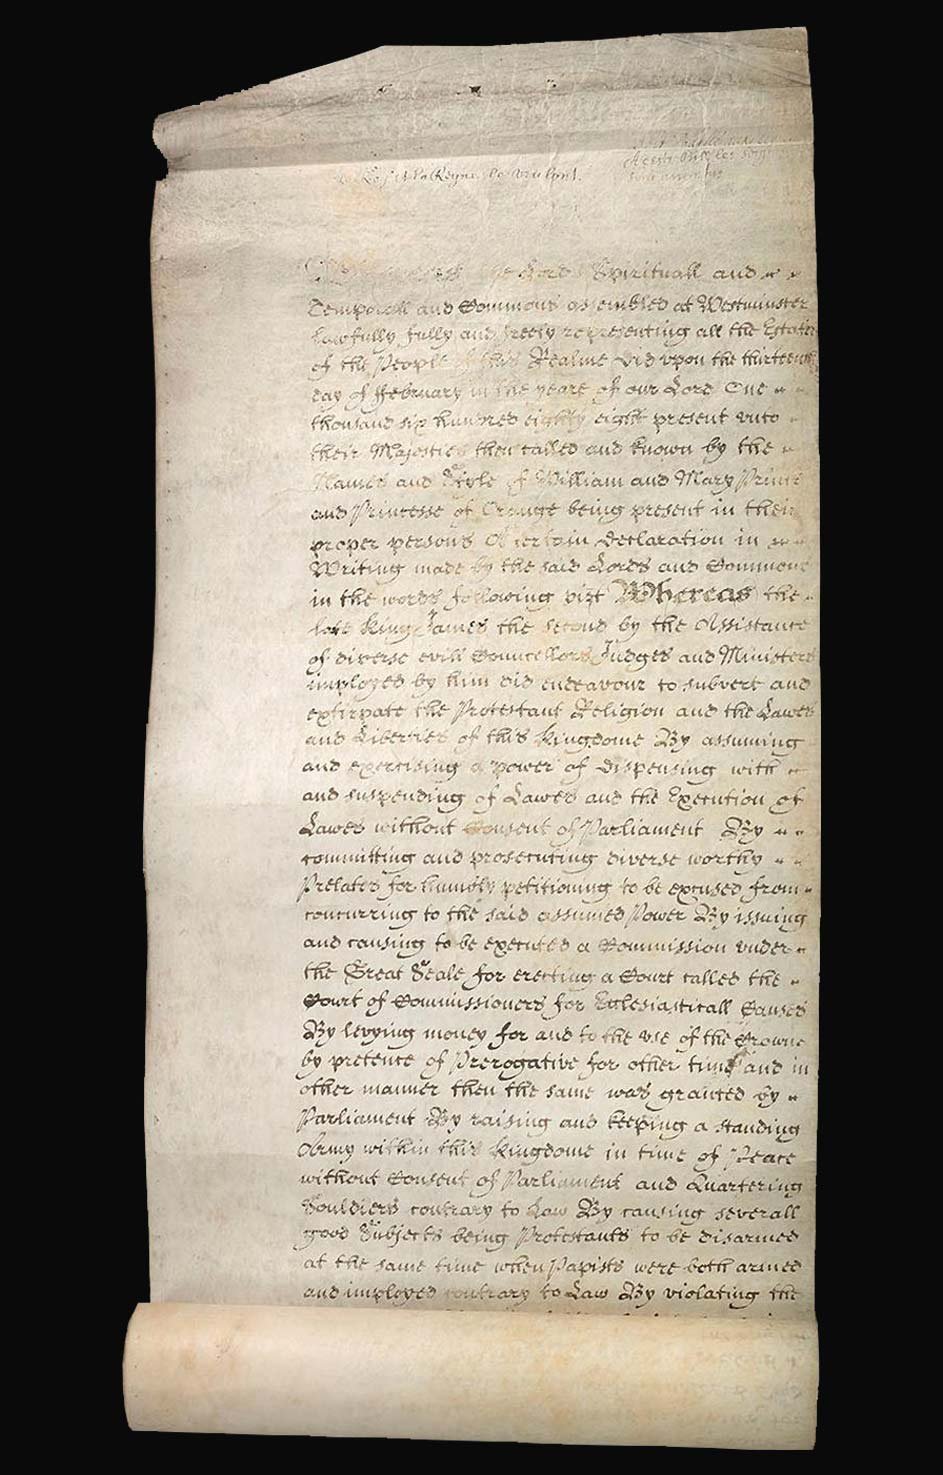 Le Roy et la Reyne le veulent.
Whereas the Lords Spirituall and
Temporall and Commons assembled at Westminster
Lawfully fully and freely representing all the Estates
of the People of this Realme did vpon the thirteenth
day of ffebruary in the yeare of our Lord One
thousand six hundred eighty eight present vnto
their Majesties then called and known by the
Names and Style of William and Mary Prince
and Princesse of Orange being present in their
proper persons A certain Declaration in
Writing made by the said Lords and Commons
in the words following vizt Whereas the
late King James the second by the Assistance
of diverse evill Councellors Judges and Ministers
imployed by him did endeavour to subvert and
extirpate the Protestant Religion and the Lawes
and Liberties of this Kingdome By assuming
and exercising a power of dispensing with
and suspending of Lawes and the Execution of
Lawes without Consent of Parliament By
committing and prosecuting diverse worthy
Prelates for humbly petitioning to be excused from
concurring to the said assumed Power By issuing
and causing to be executed a Commission vnder
the Great Seale for erecting a Court called the
Court of Commissioners for Ecclesiasticall Causes
By levying money for and to the vse of the Crowne
by pretence of Prerogative for other time and in
other manner then the same was granted by
Parliament By raising and keeping a standing
Army within this Kingdome in time of Peace
without Consent of Parliament and Quartering
Souldiers contrary to Law By causing severall
good Subjects being Protestants to be disarmed
at the same time when Papists were both armed
and imployed contrary to Law By violating the